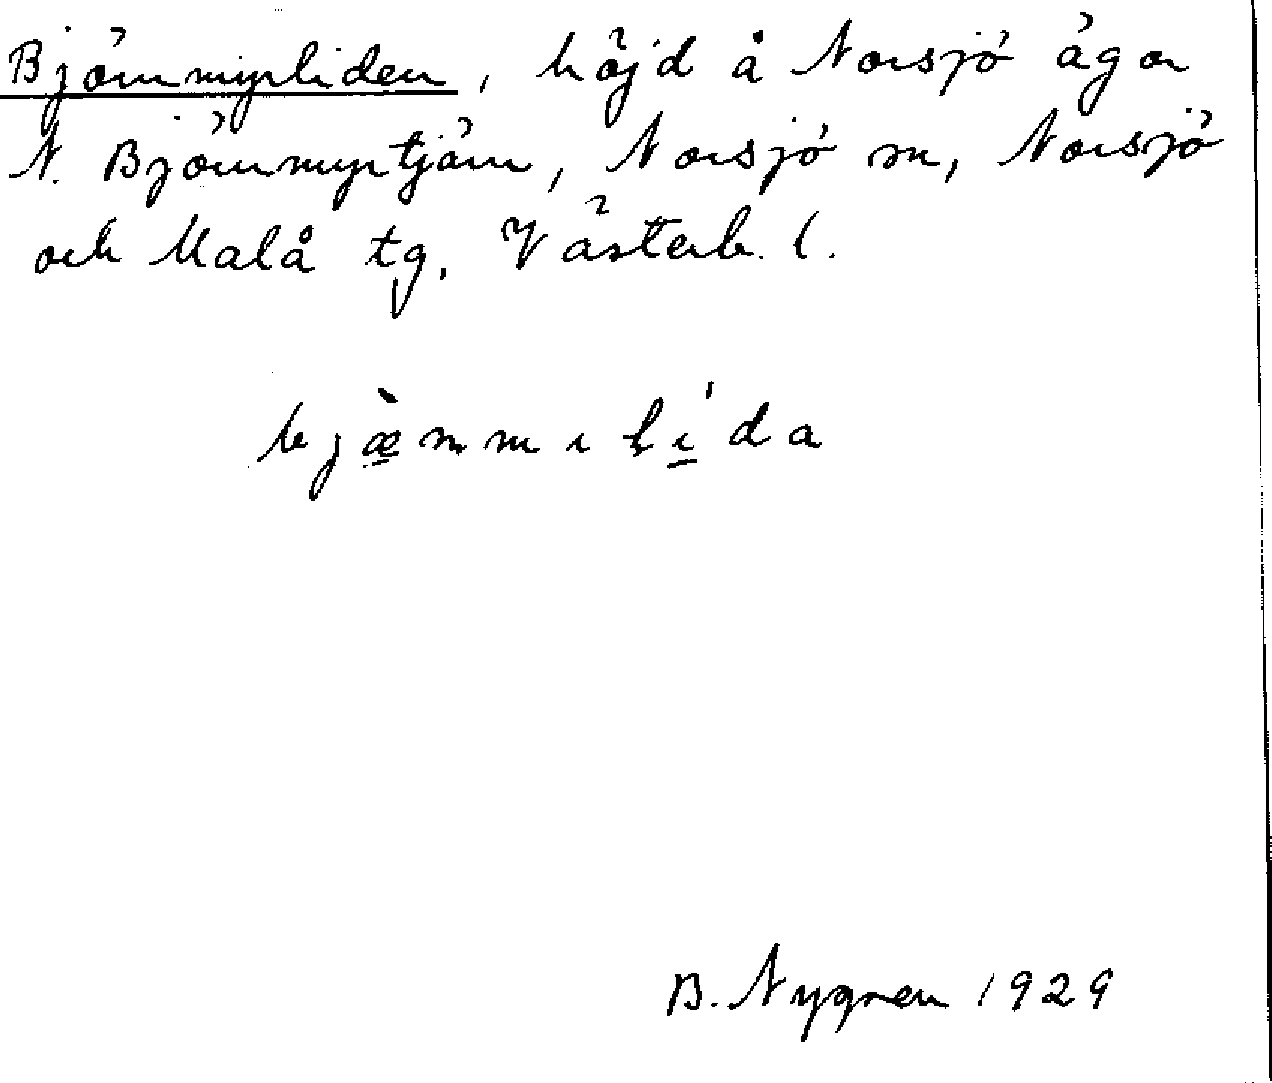 Björnmyrliden, höjd å Norsjö ägor
N. Björnmyrtjärn, Norsjö sn, Norsjö
och Malå tg, Västerb. l.
bjæ̀nnmılı́da
B. Nygren 1929